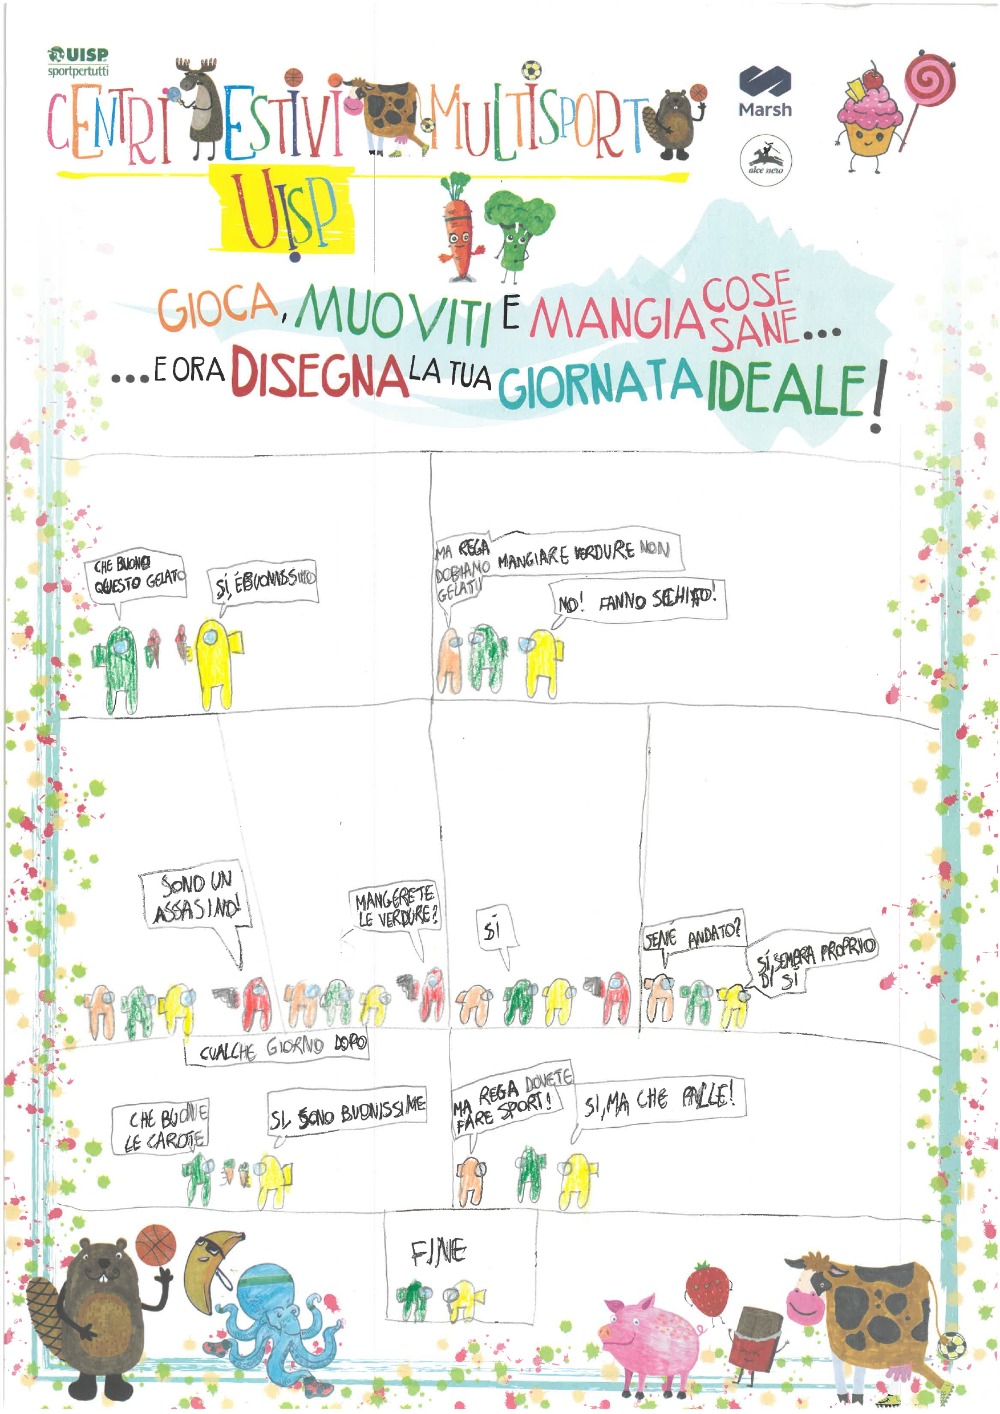 UISP
sportpertutti
CENTRI ESTIVI MULTISPORT
UISP
Marsh
alce nero
GIOCA, MUOVITI E MANGIA COSE SANE...
...E ORA DISEGNA LA TUA GIORNATA IDEALE!
CHE BUONO
QUESTO GELATO
SÍ, ÉBUONISSIMO
MA REGA
DOBIAMO MANGIARE VERDURE NON
GELATI
NO! FANNO SCHIFO!
SONO UN
ASSASINO!
MANGERETE
LE VERDURE?
SÍ
SENÉ ANDATO?
SÍ, SEMBRA PROPRIO
DI SÍ
CUALCHE GIORNO DOPO
CHE BUONE
LE CAROTE
SI, SONO BUONISSIME
MA REGA DOVETE
FARE SPORT!
SI, MA CHE PALLE!
FINE